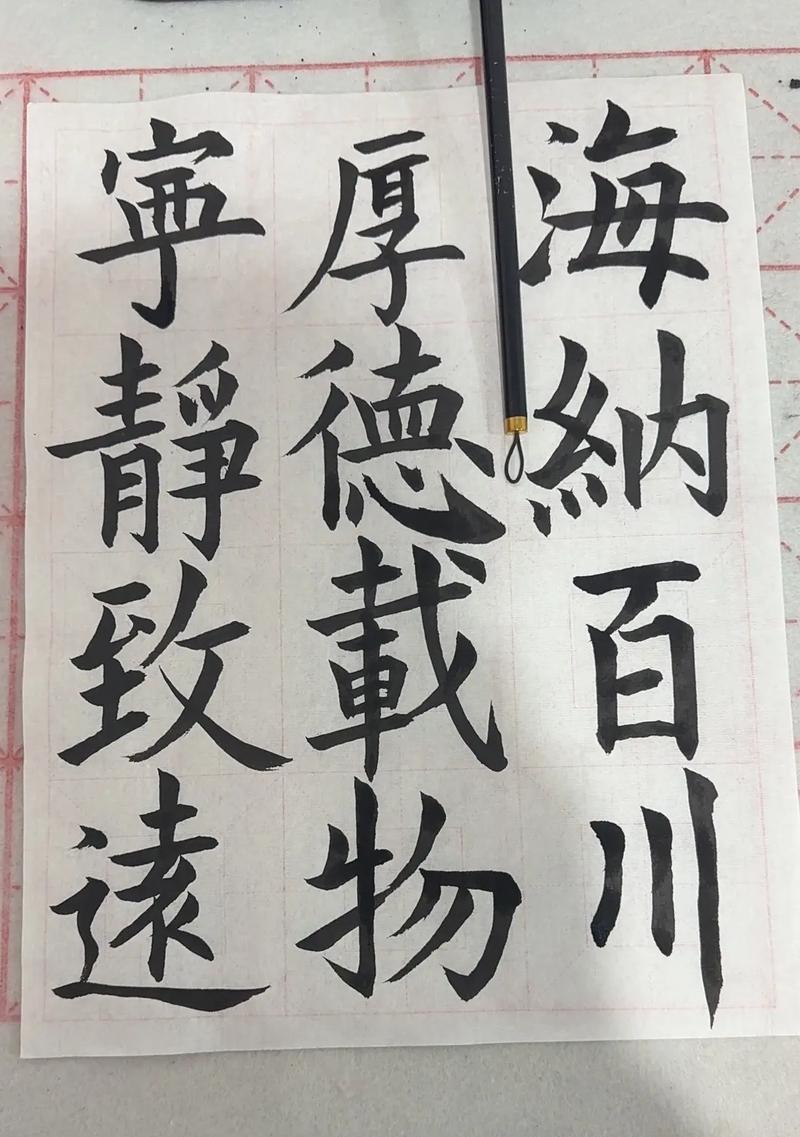 海納百川
厚德載物
寧靜致遠